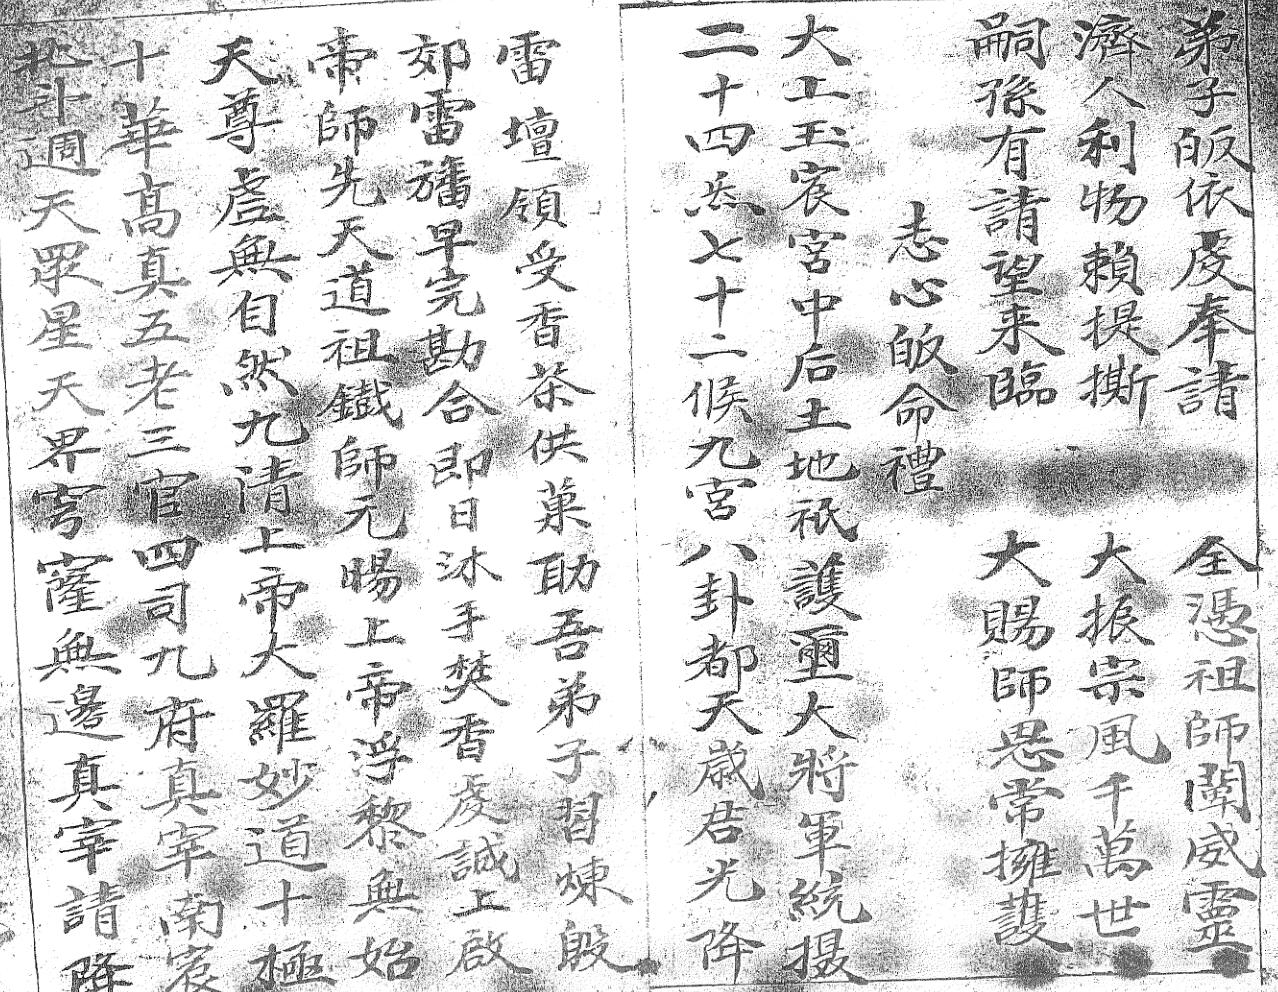 弟子皈依虔奉請　全憑祖師闡威靈
濟人利物賴提撕　大振宗風千萬世
嗣孫有請望来臨　大賜師恩常擁護
志心皈命禮
大上玉宸宮中后土地祇護壐大將軍統摄
二十四炁七十二候九宮八卦都天歳君光降
雷壇領受香茶供菓助吾弟子習煉殷
郊雷旛早完勘合即日沐手焚香虔誠上啟
帝師先天道祖鐵師元暘上帝浮黎無始
天尊虛無自然九清上帝大羅妙道十極
十華高真五老三官四司九府真宰南宸
北斗週天眾星天界穹窿無邊真宰請降